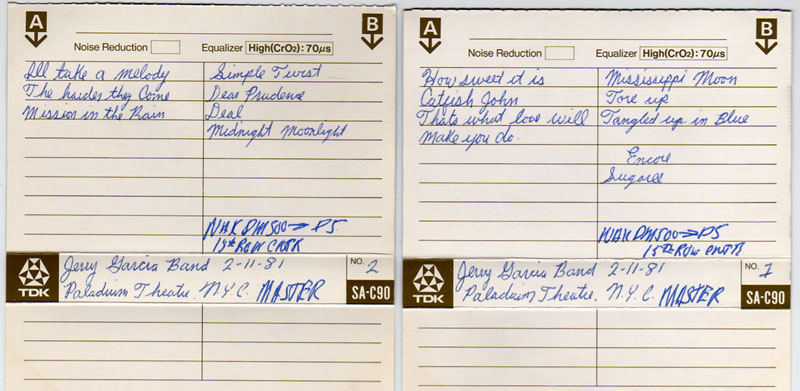 A
B
Noise Reduction
Equalizer High(CrO₂): 70μs
Ill take a melody
The harder they Come
Mission in the Rain
Simple Twist
Dear Prudence
Deal
Midnight Moonlight
NAK DM500 → D5
15th Row CNTR
TDK
Jerry Garcia Band 2-11-81
Paladium Theatre, N.Y.C. MASTER
NO. 2
SA-C90
A
B
Noise Reduction
Equalizer High(CrO₂): 70μs
How sweet it is
Catfish John
Thats what love will
make you do.
Mississippi Moon
Tore up
Tangled up in Blue
Encore
Sugaree
NAK DM500 → D5
15th Row CNTR
TDK
Jerry Garcia Band 2-11-81
Paladium Theatre, N.Y.C. MASTER
NO. 1
SA-C90